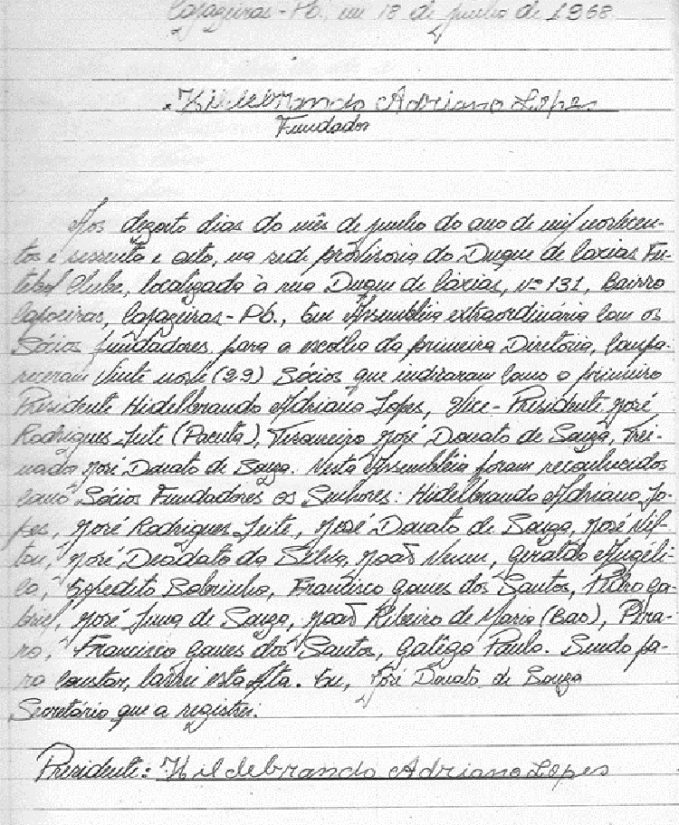 Cajazeiras-Pb., em 18 de junho de 1968.
Hildebrando Adriano Lopes
Fundador
Aos dezoito dias do mês de junho do ano de mil novecen-
tos e sessenta e oito, na sede provisoria do Duque de Caxias Fu-
tebol Clube, localizada à rua Duque de Caxias, nº 131, Bairro
Capoeiras, Cajazeiras-Pb., em Assembléia extraordinária com os
Sócios fundadores para a escolha da primeira Diretória, Compa-
receram vinte nove (29) Sócios que indicaram como o primeiro
Presidente Hidelbrando Adriano Lopes, Vice-Presidente José
Rodrigues Leite (Pacuta), Tesoureiro José Donato de Souza, Trei-
nador José Donato de Souza. Nesta Assembléia foram reconhecidos
como Sócios Fundadores os Senhores: Hidelbrando Adriano Lo-
pes, José Rodrigues Leite, José Donato de Souza, José Nil-
ton, José Deodato da Silva, João Nenem, Geraldo Angéli-
co, Expedito Sobrinho, Francisco Gomes dos Santos, Pedro Ga-
briel, José Juna de Souza, João Ribeiro de Maria (Bao),
ro, Francisco Gomes dos Santos, Galego Paulo. Sendo pa-
ra constar, lavrei esta Ata. Eu, José Donato de Souza
Secretário que a registrei.
Presidente: Hildebrando Adriano Lopes